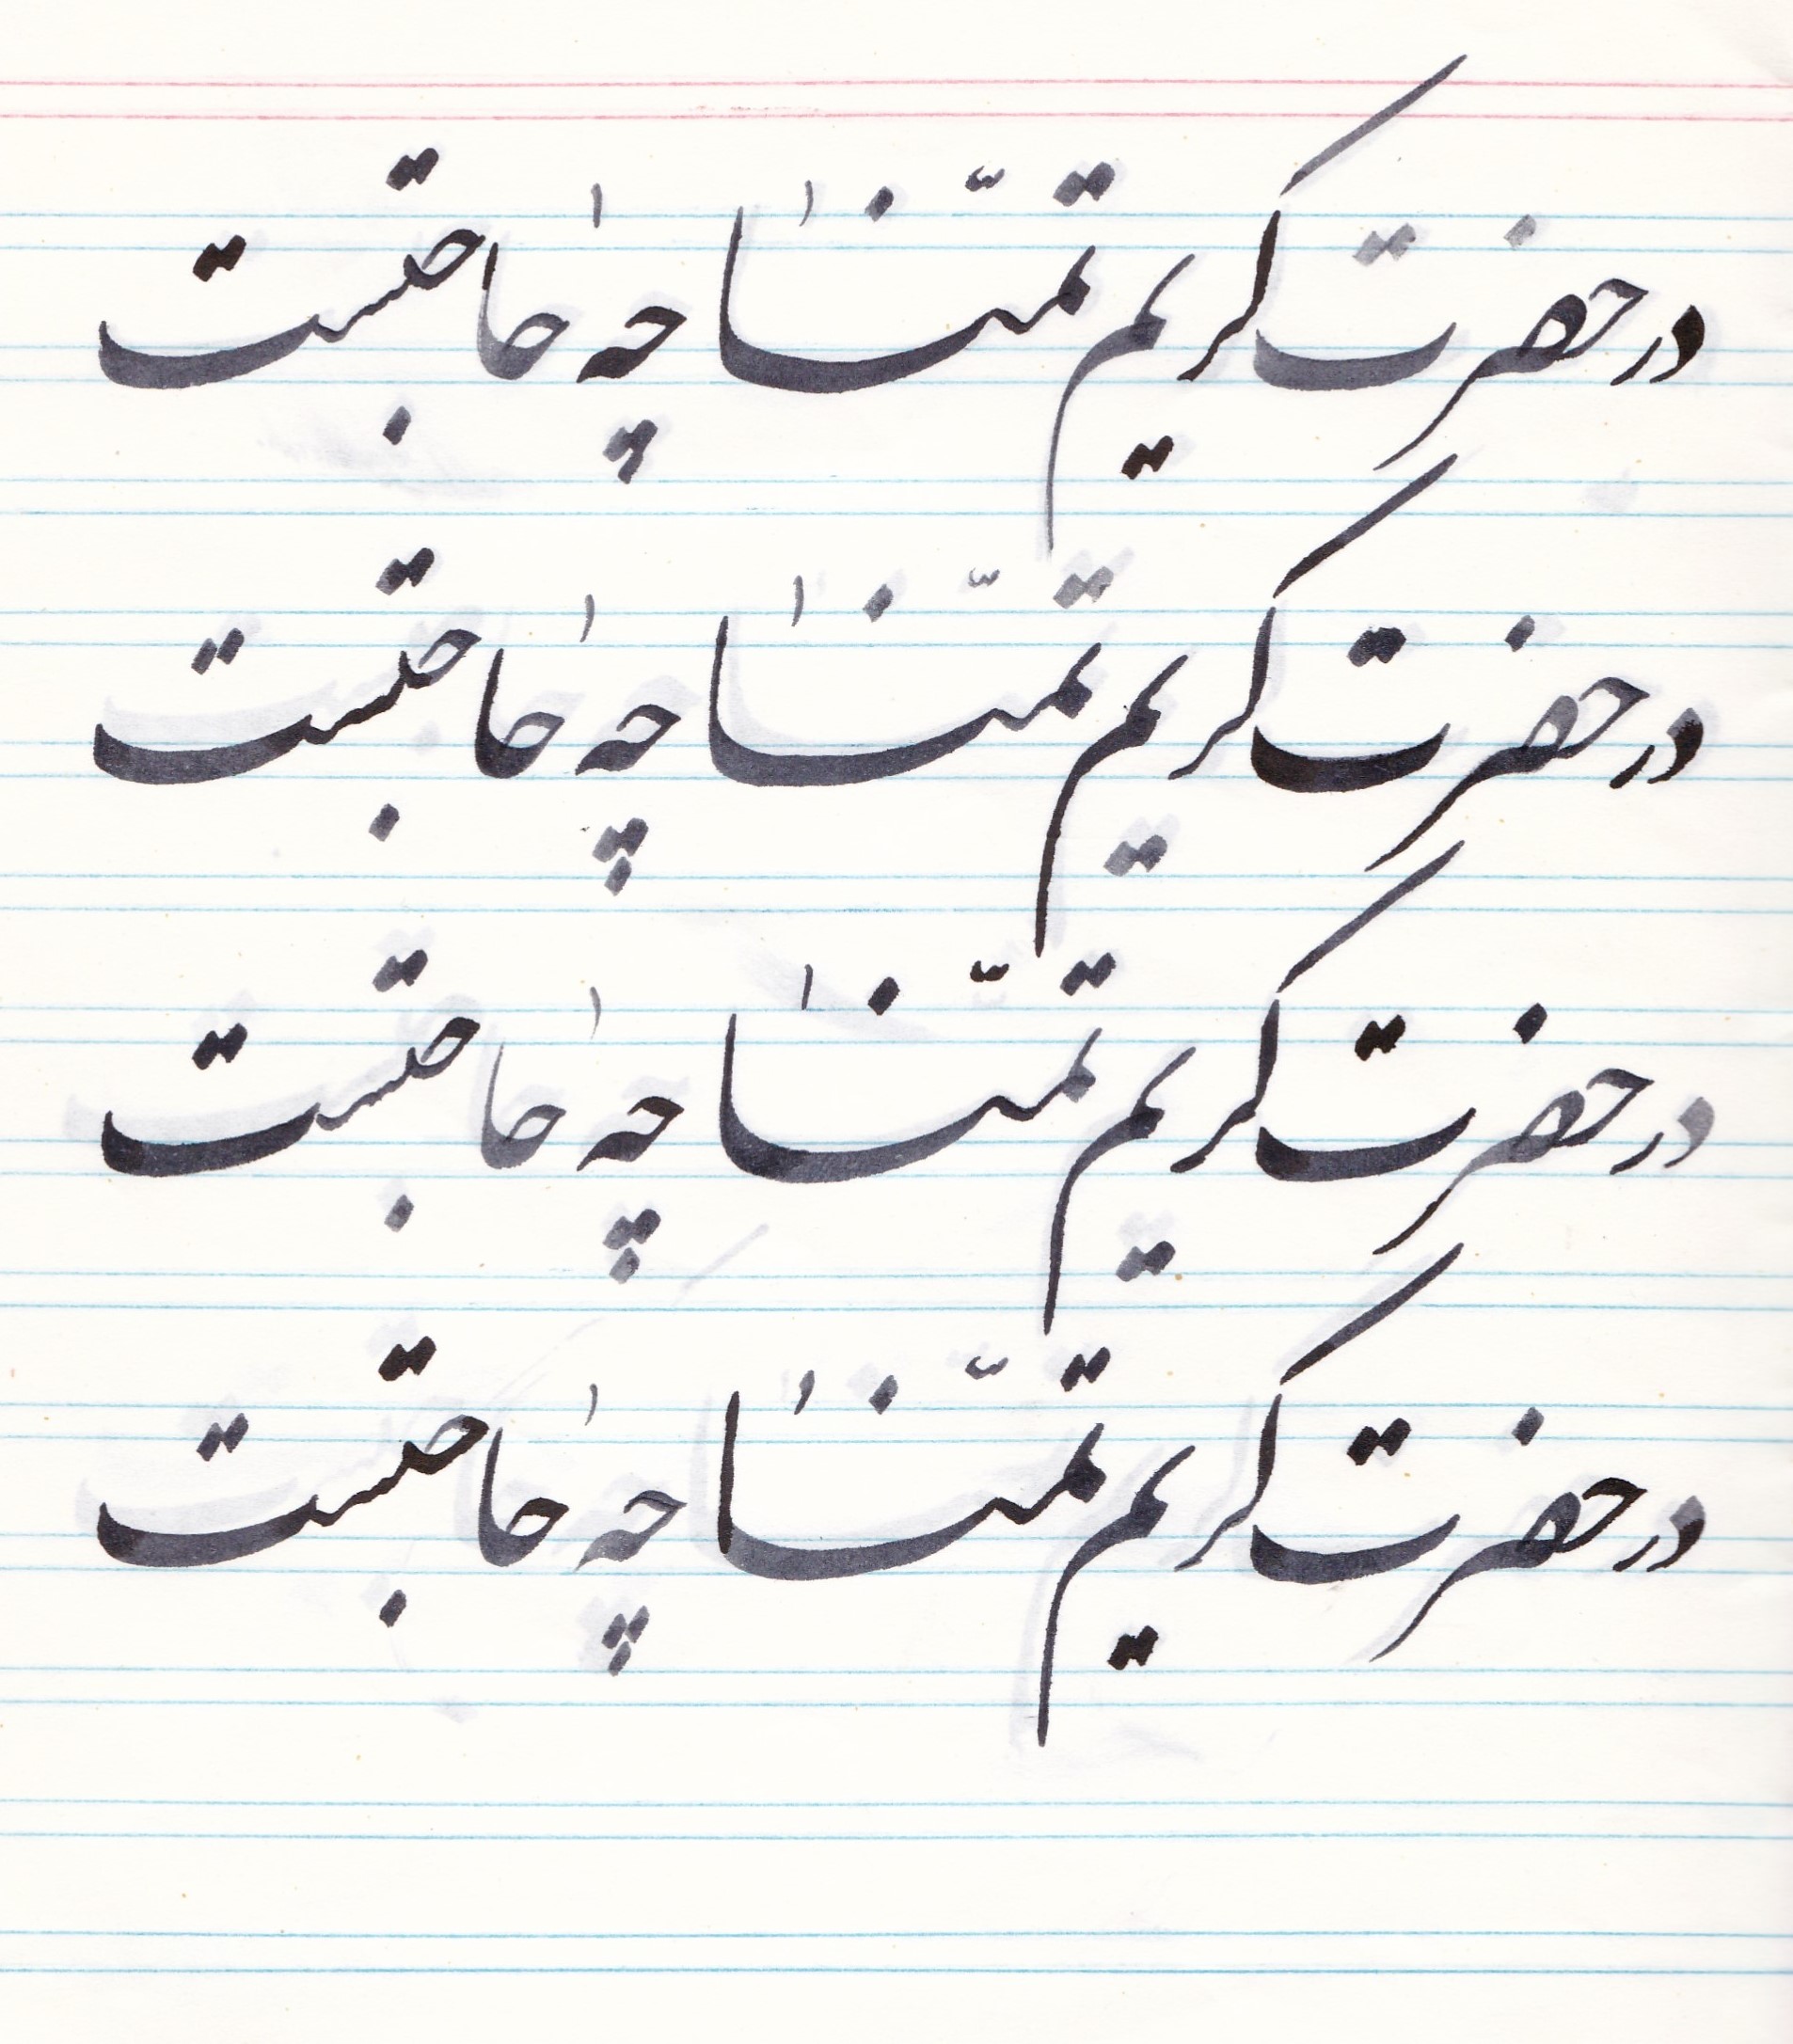 در حضرت کریم تمنّا چه حاجتست
در حضرت کریم تمنّا چه حاجتست
در حضرت کریم تمنّا چه حاجتست
در حضرت کریم تمنّا چه حاجتست